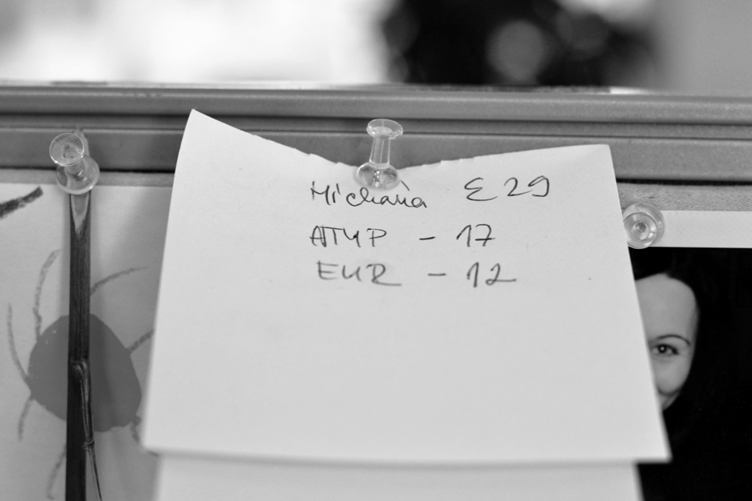 Michaela Σ 29
ATYP - 17
EUR - 12